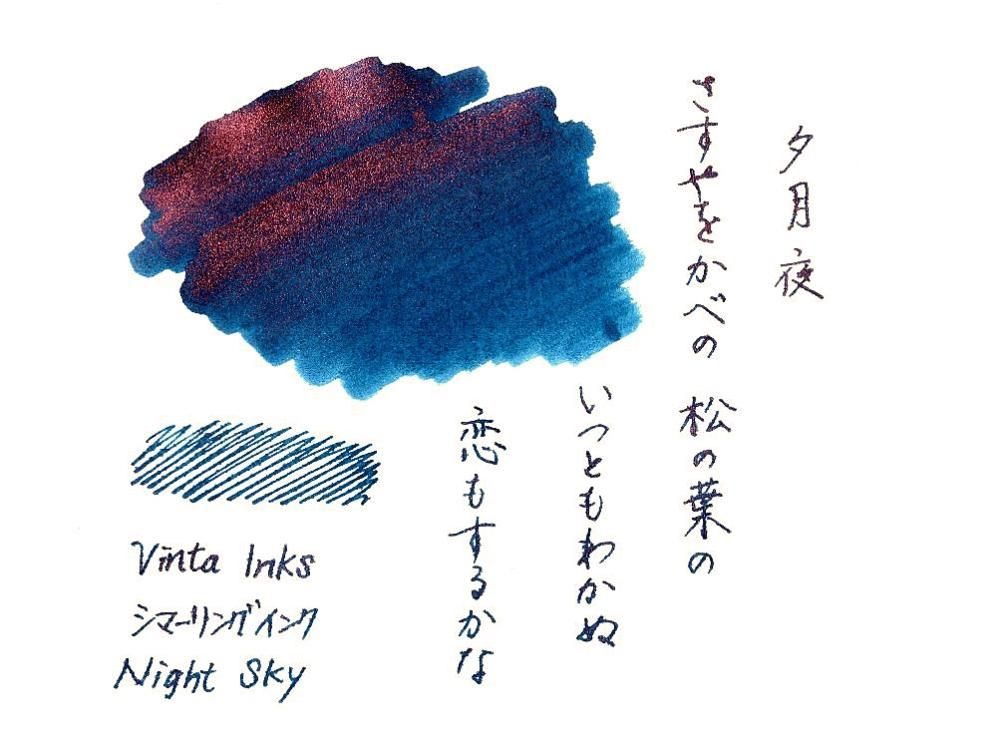 夕月夜
さすやをかべの 松の葉の
いつともわかぬ
恋もするかな
Vinta Inks
シマーリングインク
Night Sky